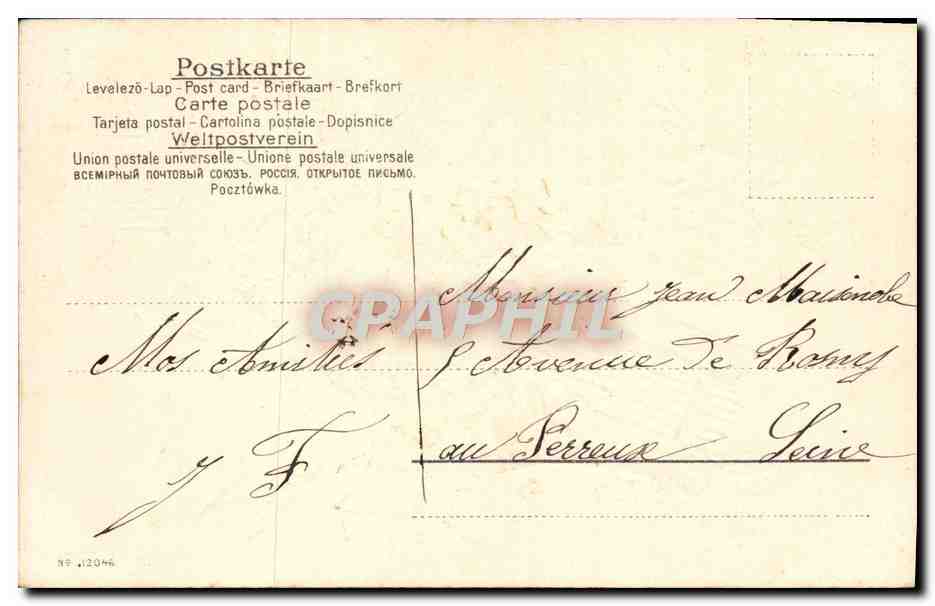 Postkarte
Levelező-Lap - Post card - Briefkaart - Brefkort
Carte postale
Tarjeta postal - Cartolina postale - Dopisnice
Weltpostverein
Union postale universelle - Unione postale universale
ВСЕМІРНЫЙ ПОЧТОВЫЙ СОЮЗЪ. РОССІЯ. ОТКРЫТОЕ ПИСЬМО.
Pocztówka.
Monsieur Jean Maisonobe
CPARAPHIL
Mos Amitiés
5 Avenue de Rosny
au Perreux Seine
J F
No .12046